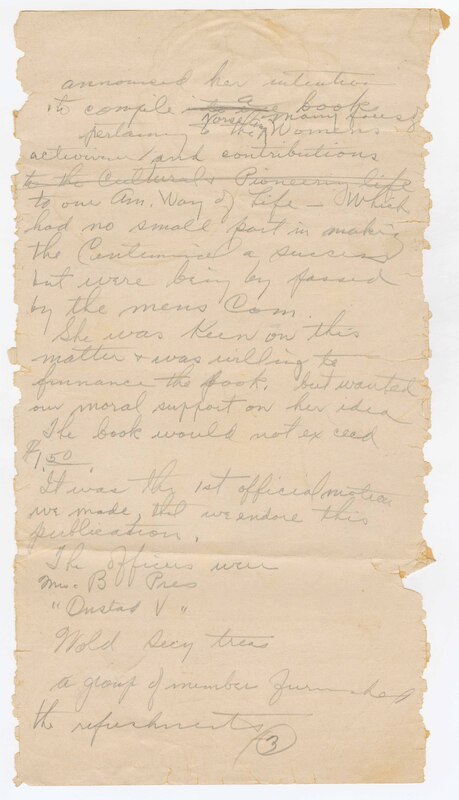 announced her intention
to compile to a book
pertaining to the Womens
activities and contributions
to the Cultural & Pioneering life
to our Am. Way of Life – Which
had no small part in making
the Centennial a success
but were being by passed
by the mens Com.
She was keen on this
matter & was willing to
finnance the book. but wanted
our moral support on her idea
The book would not exceed
$1.50
It was thy 1st official motion
we made, that we endore this
publication.
The officers were
Mrs. B Pres
" Onstad V "
Wold Secy treas
a group of member furnished
the refreshments
3